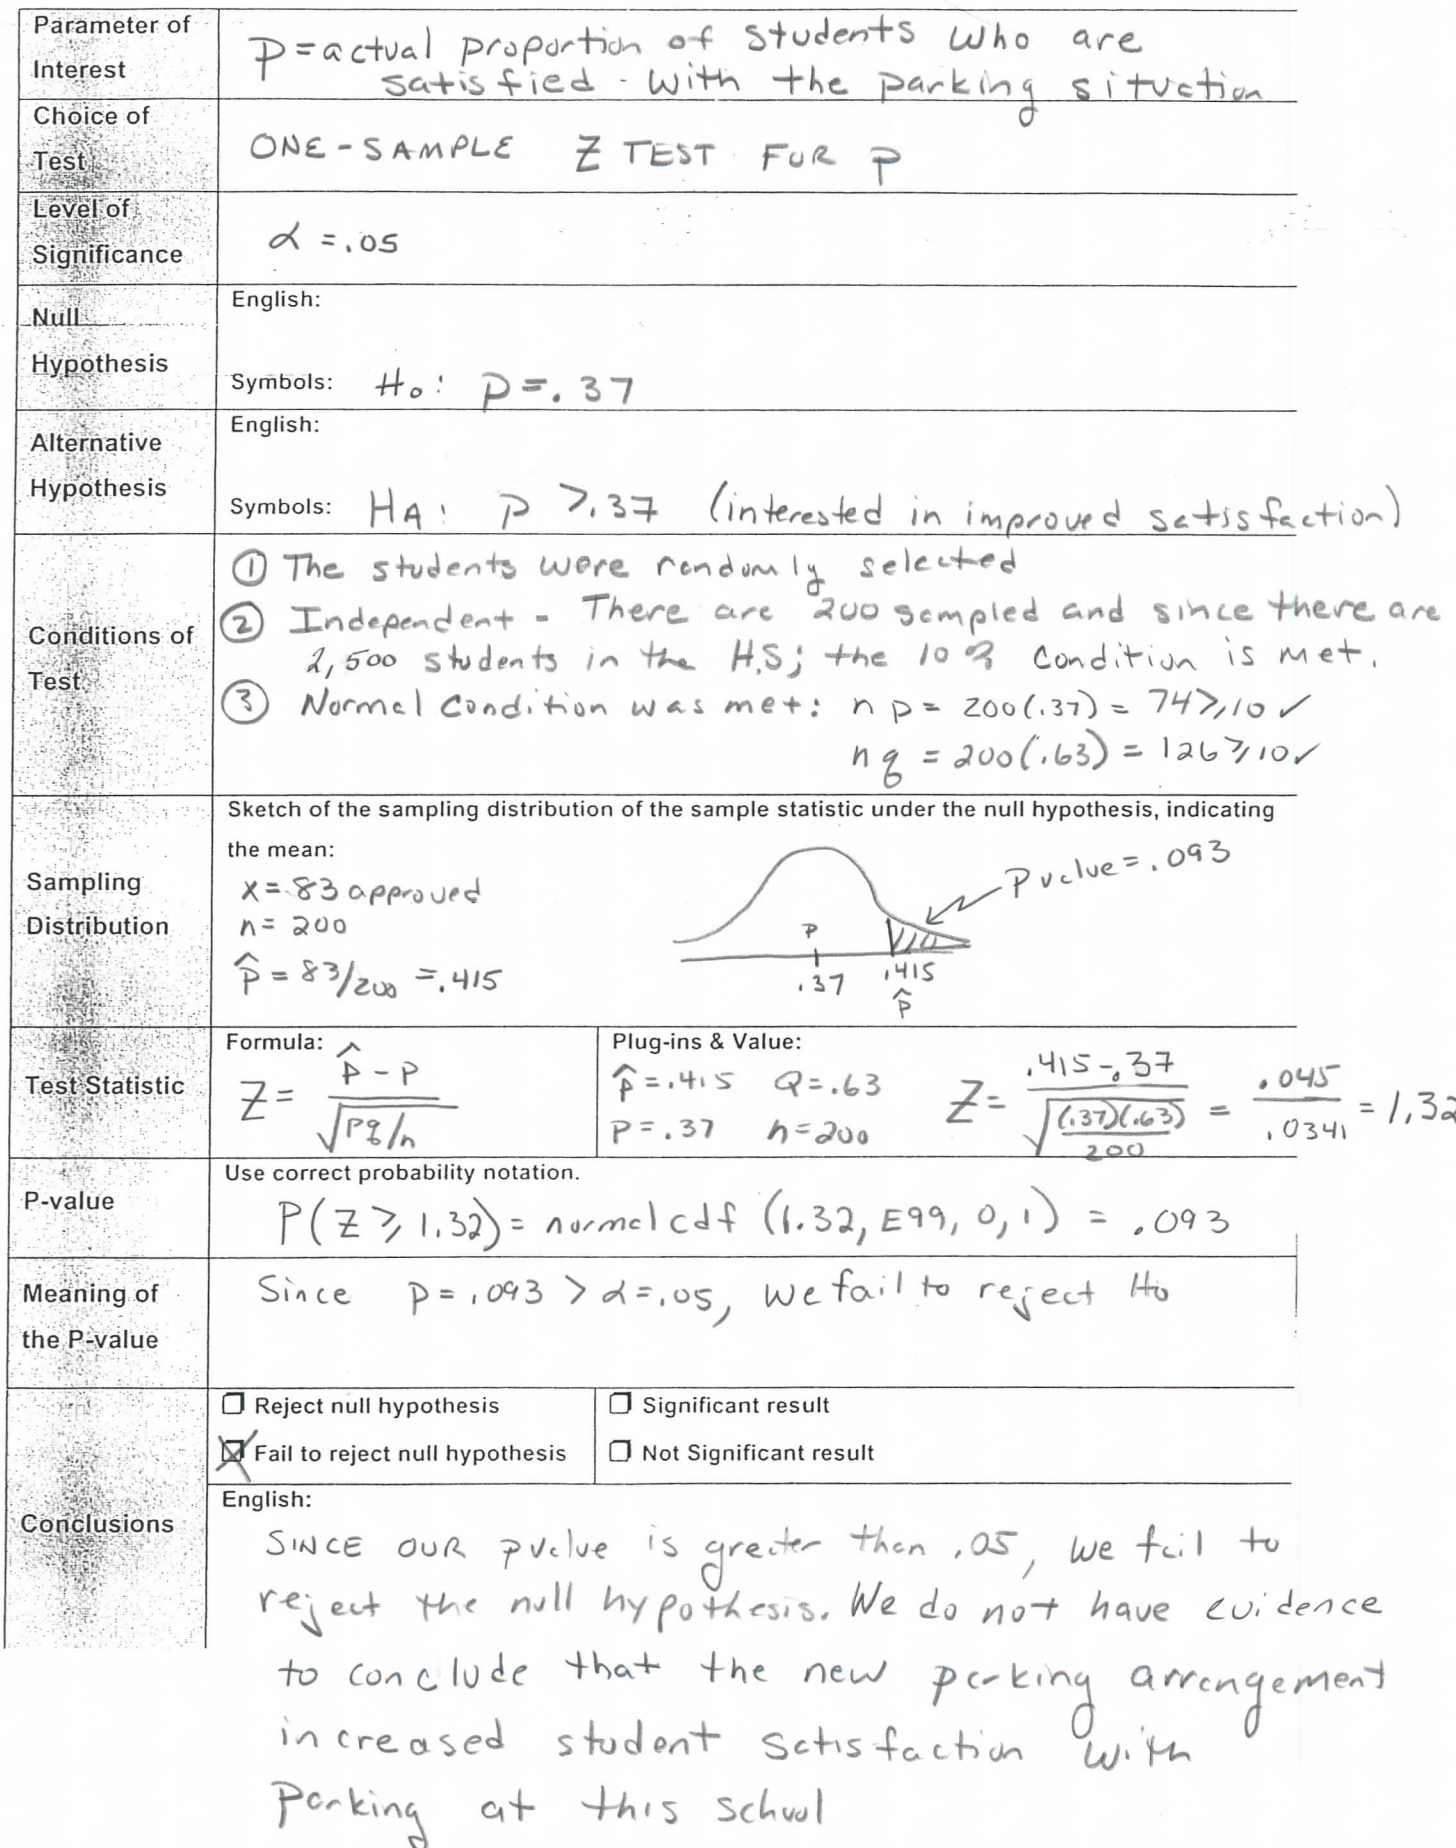 Parameter of
Interest
P = actual proportion of students who are
satisfied with the parking situation
Choice of
Test
ONE-SAMPLE Z TEST FOR P
Level of
Significance
α = .05
Null
Hypothesis
English:
Symbols: H₀: P = .37
Alternative
Hypothesis
English:
Symbols: HA: P > .37 (interested in improved satisfaction)
Conditions of
Test
① The students were randomly selected
② Independent - There are 200 sampled and since there are
2,500 students in the H.S; the 10% condition is met.
③ Normal Condition was met: np = 200(.37) = 74 ≥ 10 ✓
nq = 200(.63) = 126 ≥ 10 ✓
Sampling
Distribution
Sketch of the sampling distribution of the sample statistic under the null hypothesis, indicating
the mean:
x = 83 approved
n = 200
p̂ = 83/200 = .415
P value = .093
P
.37
.415
p̂
Test Statistic
Formula:
Z = (p̂ - p) / √(pq/n)
Plug-ins & Value:
p̂ = .415 Q = .63
P = .37 n = 200
Z = (.415 - .37) / √((.37)(.63)/200) = .045/.0341 = 1.32
P-value
Use correct probability notation.
P(Z ≥ 1.32) = normalcdf (1.32, E99, 0, 1) = .093
Meaning of
the P-value
Since P = .093 > α = .05, we fail to reject H₀
Conclusions
Reject null hypothesis
Fail to reject null hypothesis
Significant result
Not Significant result
English:
SINCE OUR pvalue is greater than .05, we fail to
reject the null hypothesis. We do not have evidence
to conclude that the new parking arrangement
increased student satisfaction with
Parking at this school